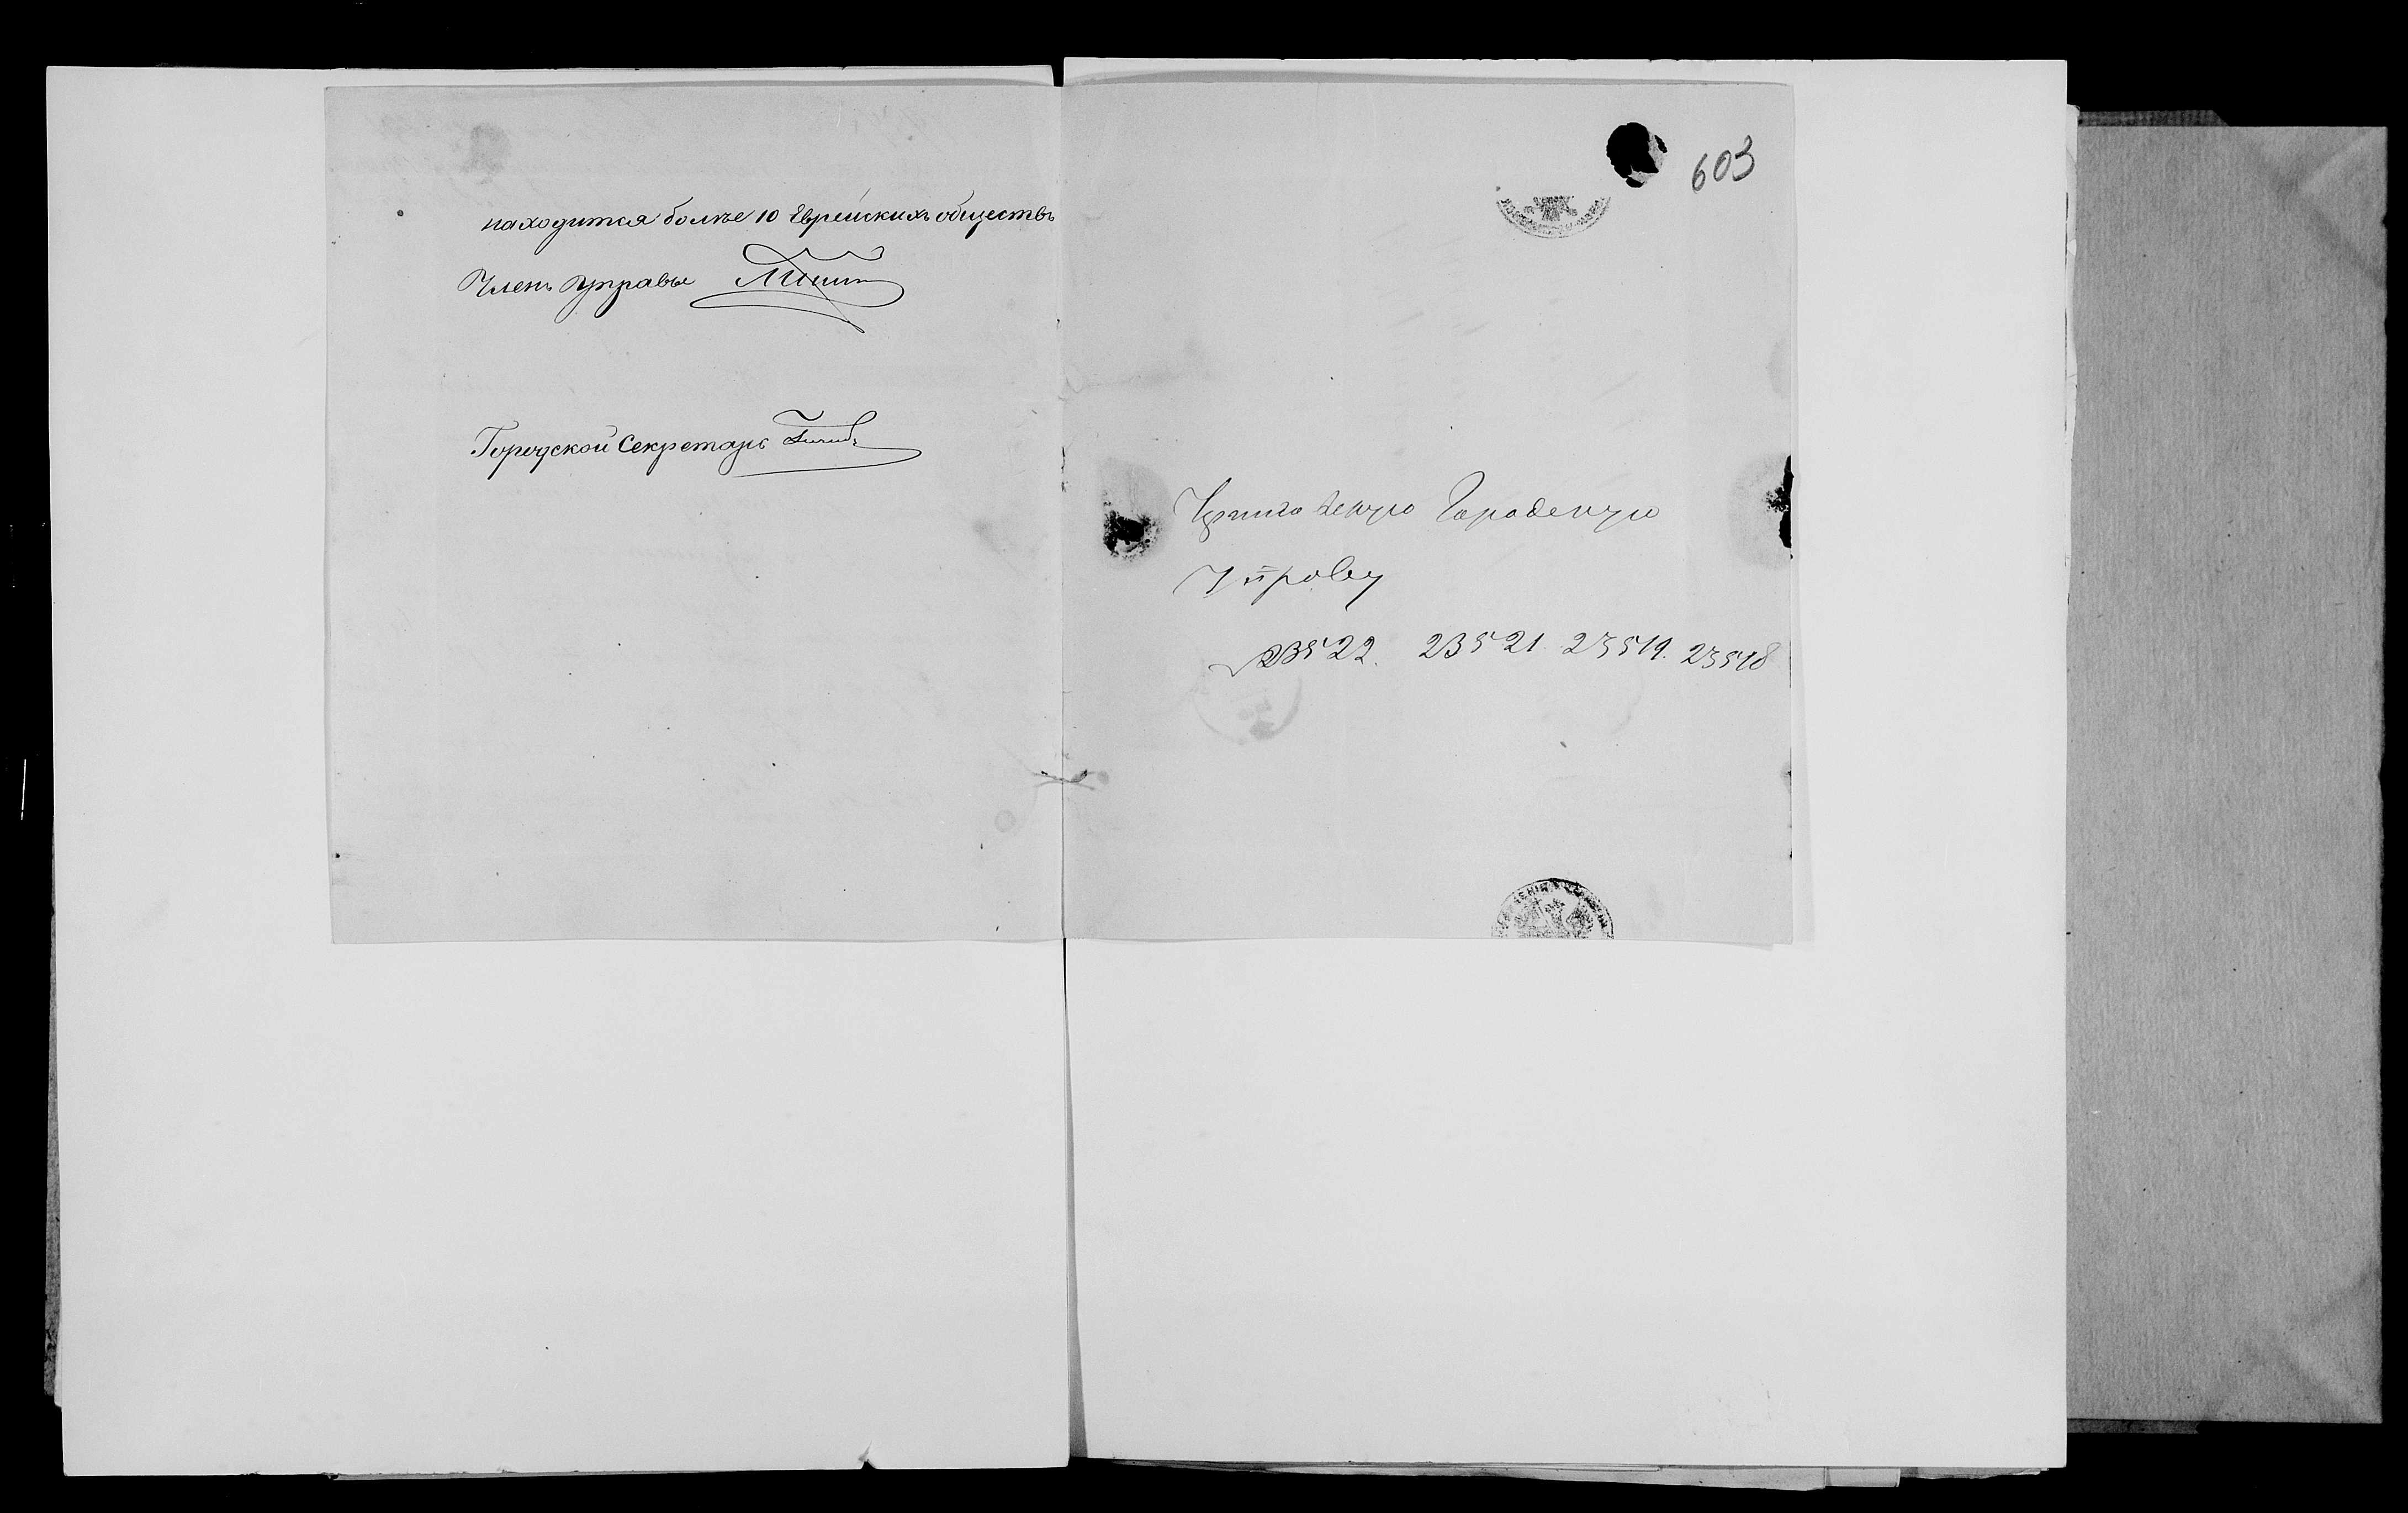 находится болѣе 10 Еврейскихъ обществъ
Членъ Управы
Городской Секретарь
603
Черниговскую Городскую
Управу
23522. 23521. 23519. 23518